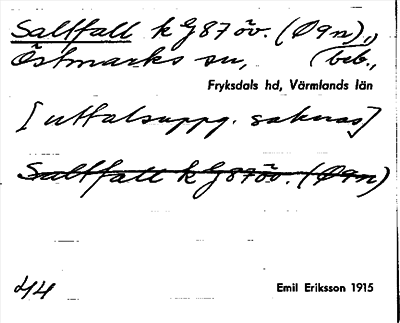 Saltfall k G87öv. (Ø9n),,
Östmarks sn, (beb.,
Fryksdals hd, Värmlands län
[uttalsuppg. saknas]
Saltfall k G87öv. (Ø9n)
44
Emil Eriksson 1915